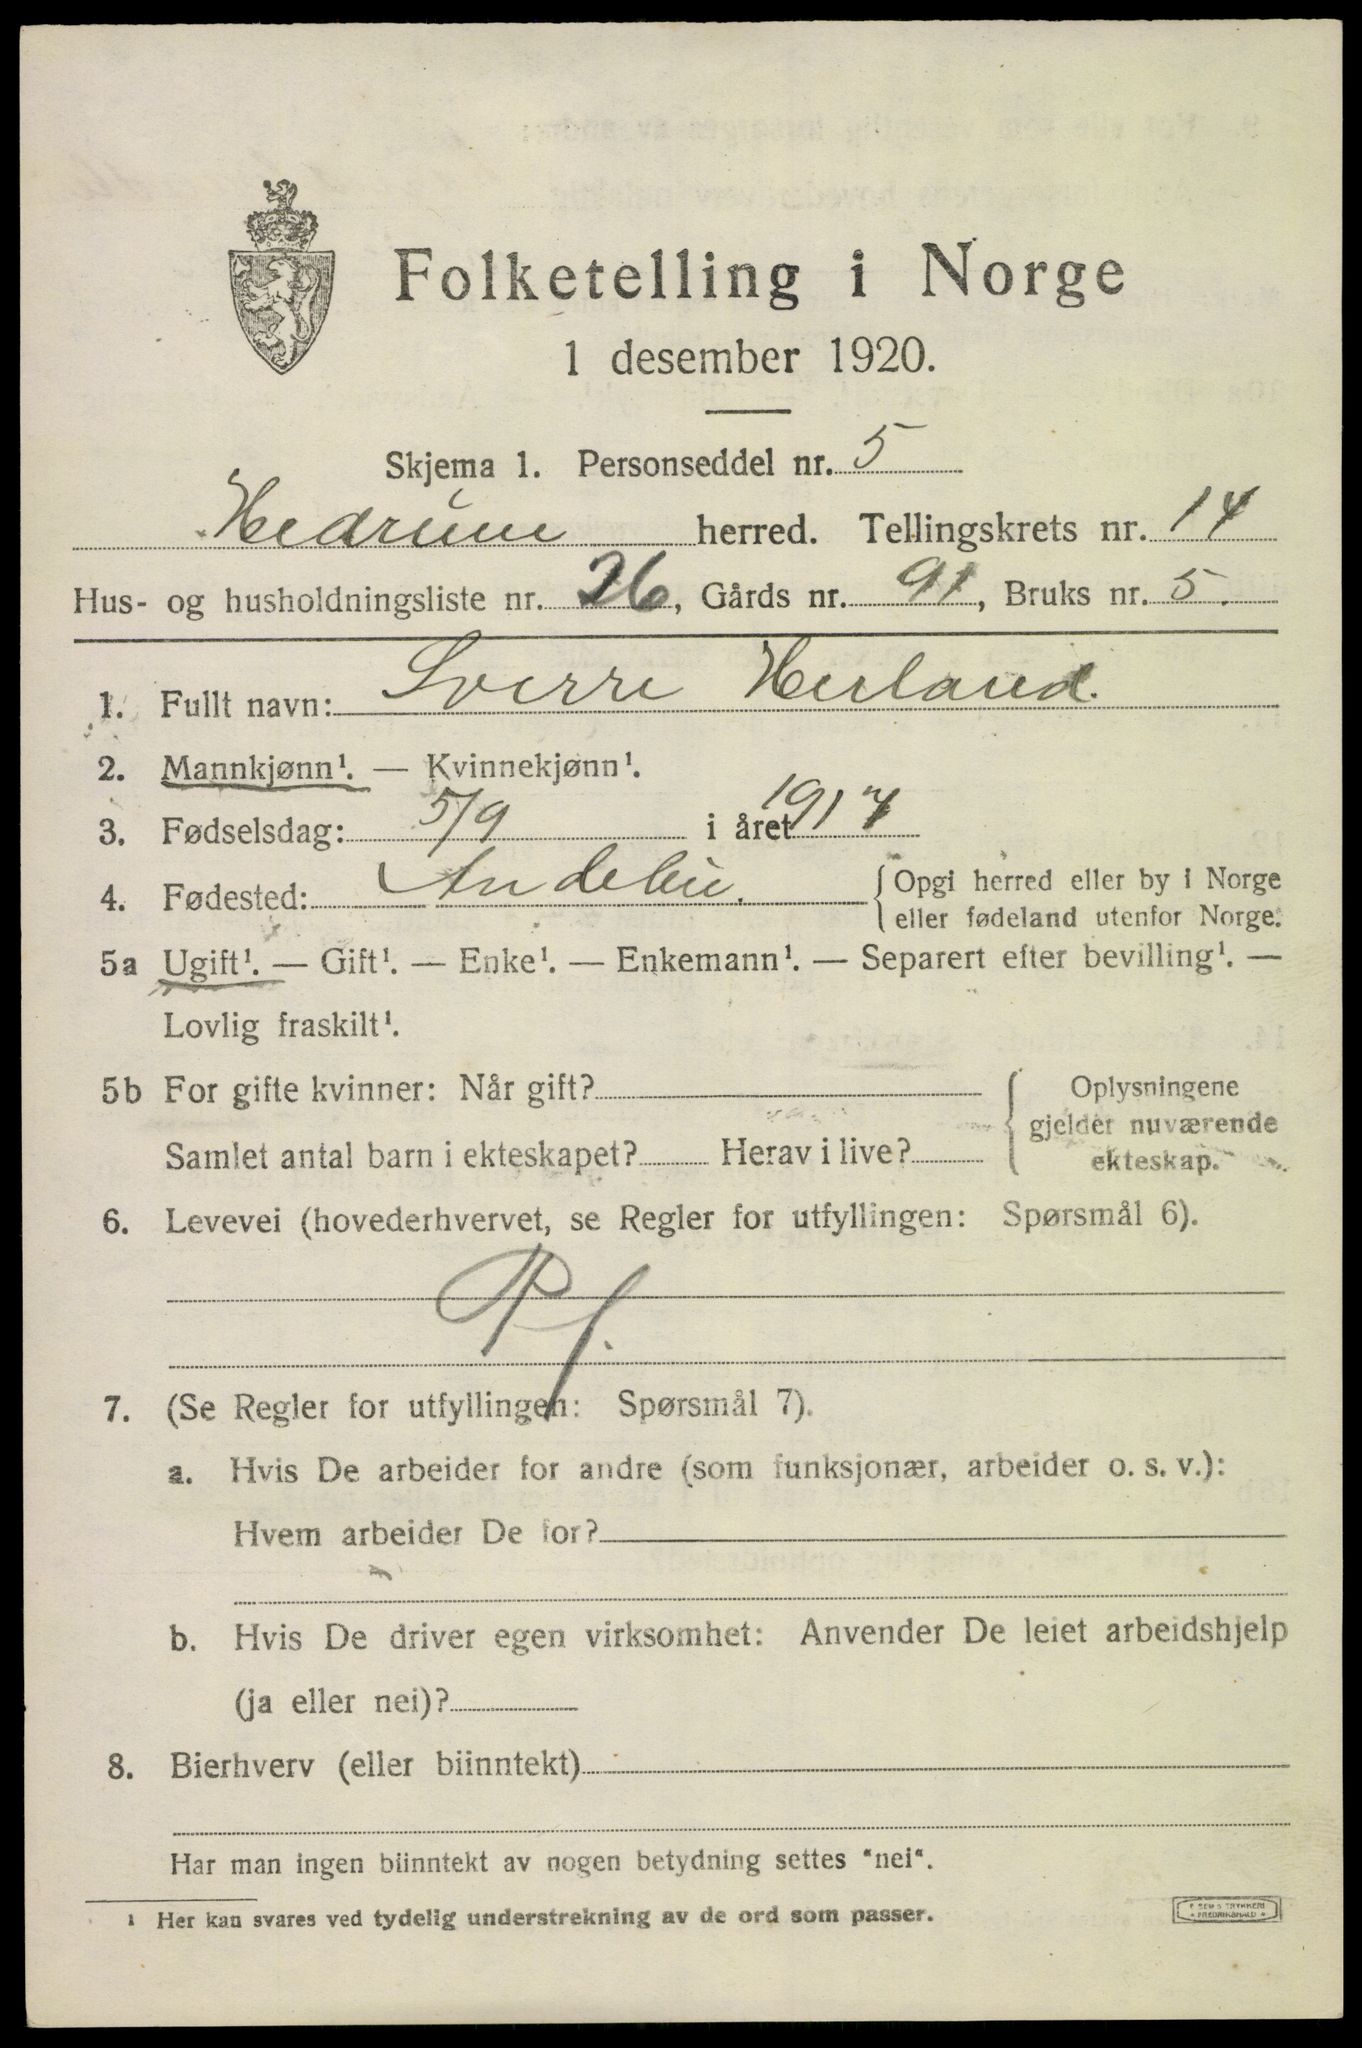 Folketelling i Norge
1 desember 1920.
Skjema 1. Personseddel nr. 5
Hedrum herred. Tellingskrets nr. 14
Hus- og husholdningsliste nr. 26, Gårds nr. 91, Bruks nr. 5.
1. Fullt navn: Sverre Herland.
2. Mannkjønn¹. — Kvinnekjønn¹.
3. Fødselsdag: 5/9 i året 1917
4. Fødested: Andebu. {Opgi herred eller by i Norge
eller fødeland utenfor Norge.
5a Ugift¹. — Gift¹. — Enke¹. — Enkemann¹. — Separert efter bevilling¹. —
Lovlig fraskilt¹.
5b For gifte kvinner: Når gift? { Oplysningene
gjelder nuværende
Samlet antal barn i ekteskapet? Herav i live? ekteskap.
6. Levevei (hovederhvervet, se Regler for utfyllingen: Spørsmål 6).
7. (Se Regler for utfyllingen: Spørsmål 7).
a. Hvis De arbeider for andre (som funksjonær, arbeider o. s. v.):
Hvem arbeider De for?
b. Hvis De driver egen virksomhet: Anvender De leiet arbeidshjelp
(ja eller nei)?
8. Bierhverv (eller biinntekt)
Har man ingen biinntekt av nogen betydning settes "nei".
¹ Her kan svares ved tydelig understrekning av de ord som passer.
SEM'S TRYKKERI
* FREDRIKSHALD *